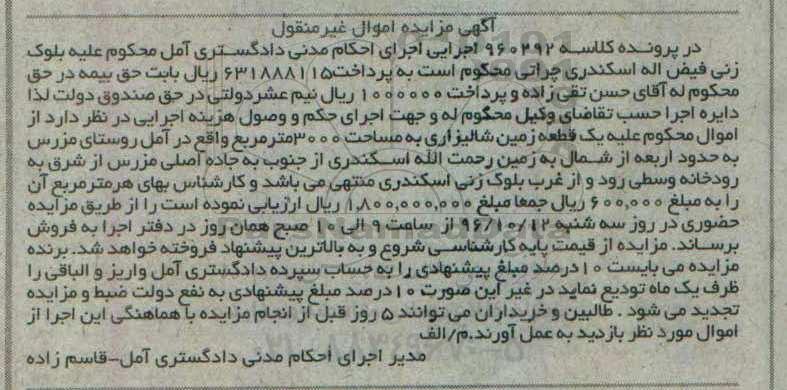 آگهی مزایده اموال غیرمنقول
در پرونده کلاسه ۹۶۰۲۹۲ اجرایی اجرای احکام مدنی دادگستری آمل محکوم علیه بلوک
زنی فیض اله اسکندری چراتی محکوم است به پرداخت ۶۳۱۸۸۸۱۱۵ ریال بابت حق بیمه در حق
محکوم له آقای حسن تقی زاده و پرداخت ۱۰۰۰۰۰۰ ریال نیم عشر دولتی در حق صندوق دولت لذا
دایره اجرا حسب تقاضای وکیل محکوم له و جهت اجرای حکم و وصول هزینه اجرایی در نظر دارد از
اموال محکوم علیه یک قطعه زمین شالیزاری به مساحت ۳۰۰۰ مترمربع واقع در آمل روستای مزرس
به حدود اربعه از شمال به زمین رحمت الله اسکندری از جنوب به جاده اصلی مزرس از شرق به
رودخانه وسطی رود و از غرب بلوک زنی اسکندری منتهی می باشد و کارشناس بهای هرمترمربع آن
را به مبلغ ۶۰۰,۰۰۰ ریال جمعا مبلغ ۱,۸۰۰,۰۰۰,۰۰۰ ریال ارزیابی نموده است را از طریق مزایده
حضوری در روز سه شنبه ۹۶/۱۰/۱۲ از ساعت ۹ الی ۱۰ صبح همان روز در دفتر اجرا به فروش
برساند. مزایده از قیمت پایه کارشناسی شروع و به بالاترین پیشنهاد فروخته خواهد شد. برنده
مزایده می بایست ۱۰ درصد مبلغ پیشنهادی را به حساب سپرده دادگستری آمل واریز و الباقی را
ظرف یک ماه تودیع نماید در غیر این صورت ۱۰ درصد مبلغ پیشنهادی به نفع دولت ضبط و مزایده
تجدید می شود . طالبین و خریداران می توانند ۵ روز قبل از انجام مزایده با هماهنگی این اجرا از
اموال مورد نظر بازدید به عمل آورند.م/الف
مدیر اجرای احکام مدنی دادگستری آمل-قاسم زاده